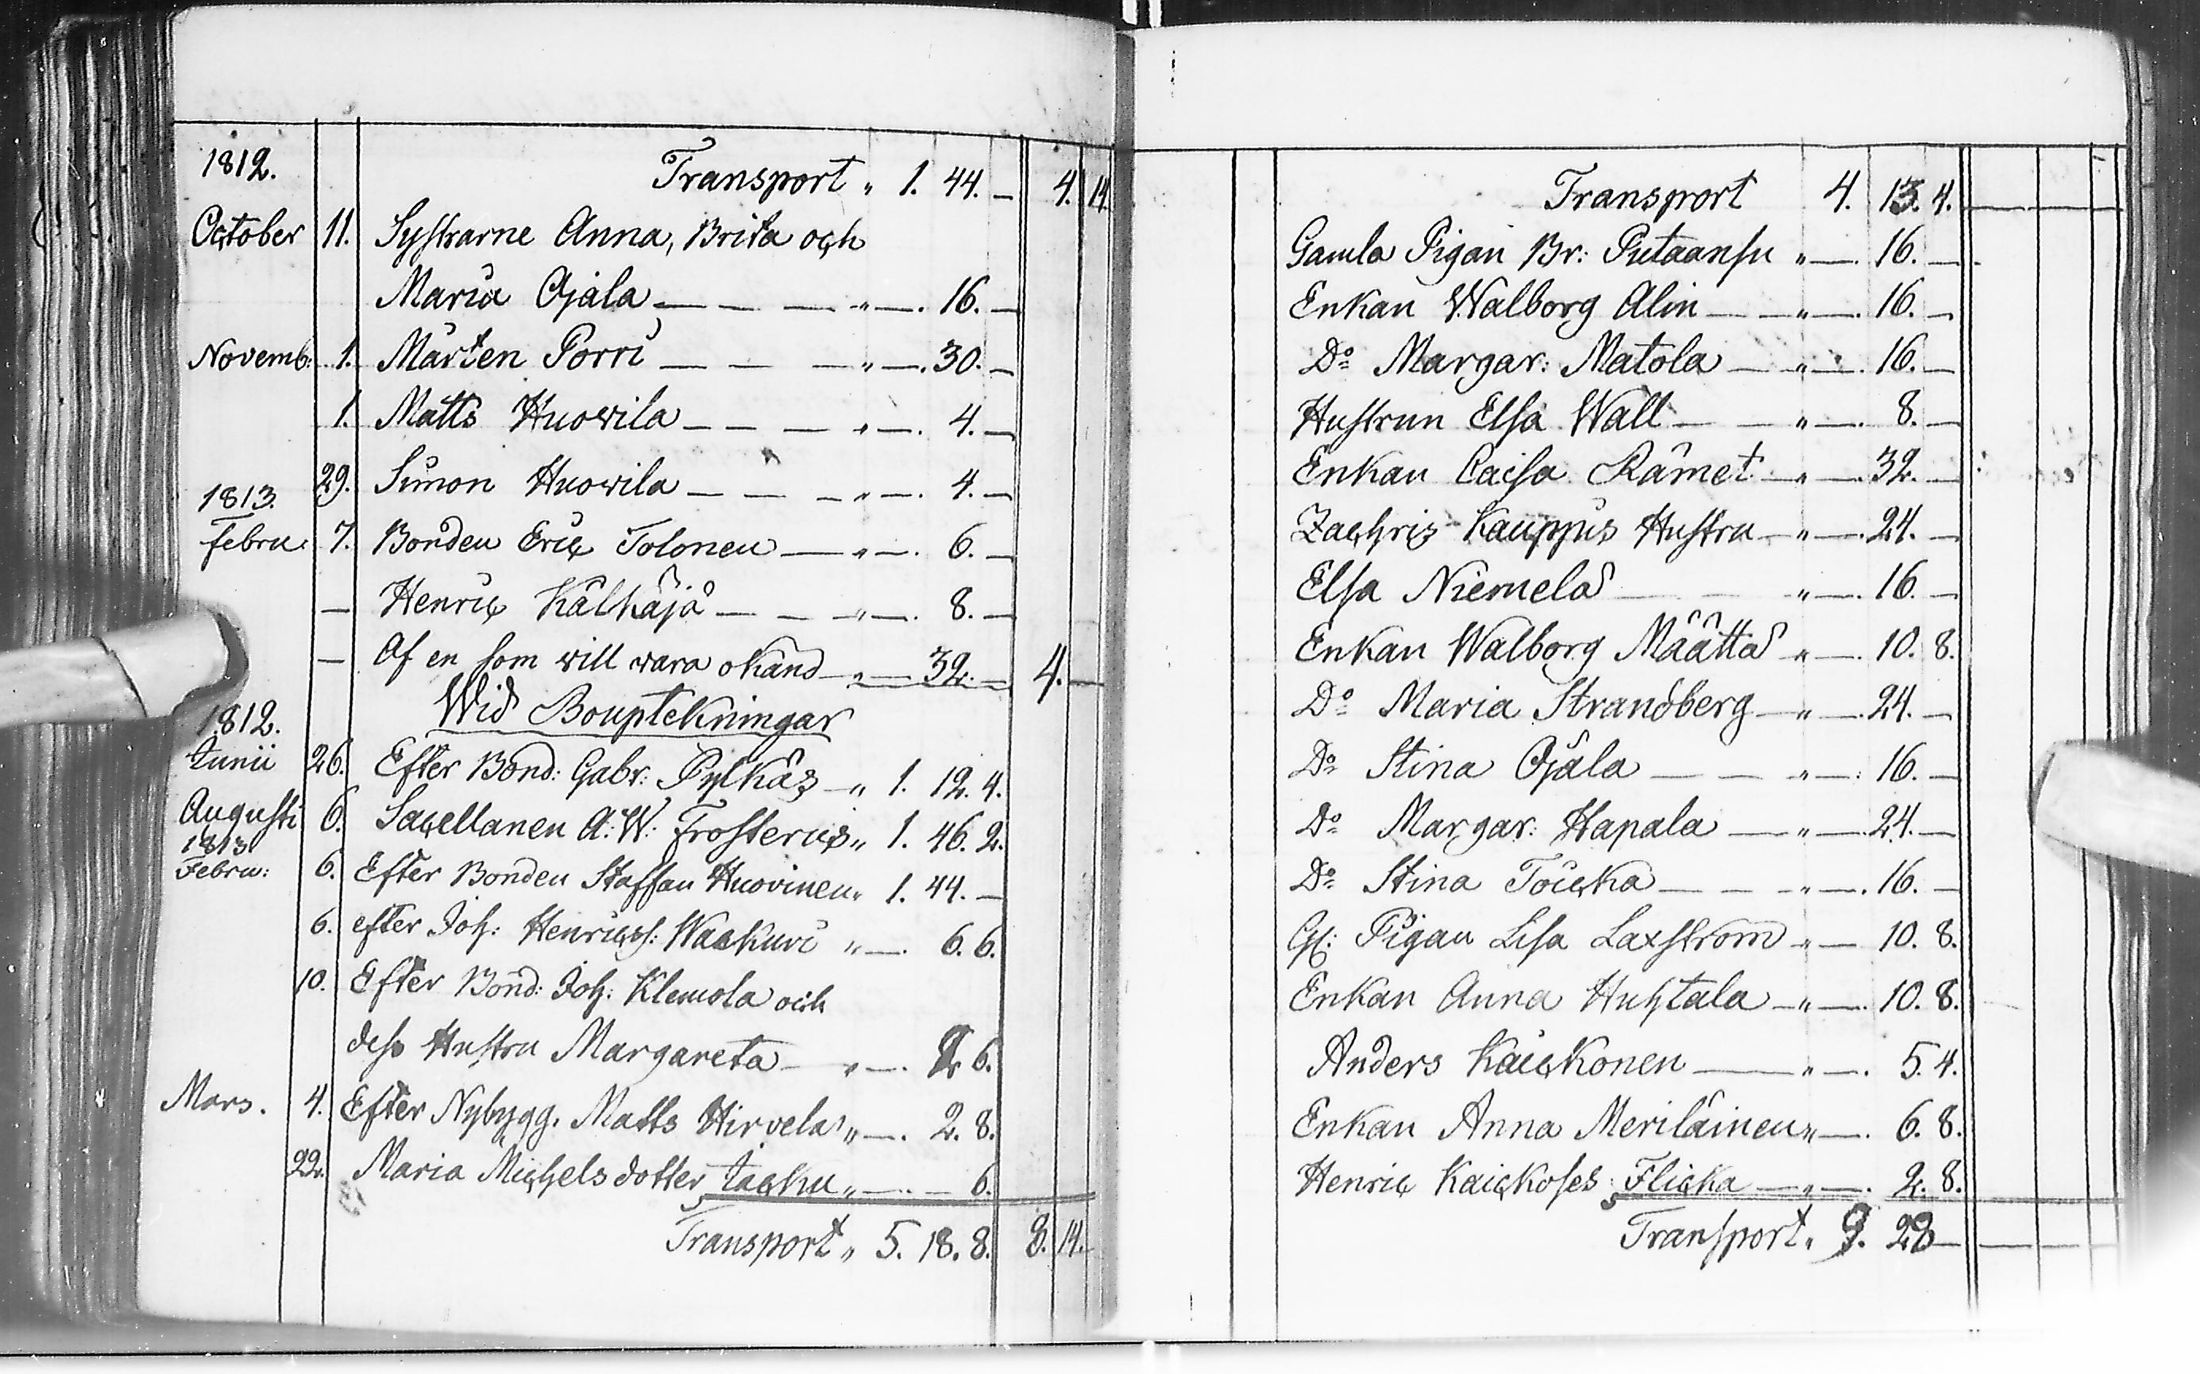 1812. Transport „ 1. 44. — 4. 14.
October 11. Systrarne Anna, Brita och
Maria Ojala — — — „ —. 16. —
Novemb: 1. Mårten Porri — — — „ —. 30. —
1. Matts Huovila — — — „ —. 4. —
29. Simon Huovila — — — „ —. 4. —
1813.
Febru: 7. Bonden Eric Tolonen — „ —. 6. —
— Henric Kälkäjä — — — „ —. 8. —
— Af en som will wara okänd — „ — 32. — 4. —
Wid Bouptekningar
1812.
Junii 26. Efter Bond: Gabr: Pylkäs — „ 1. 12. 4.
Augusti 6. Sacellanen A: W: Frosterus „ 1. 46. 2.
1813
Febru: 6. Efter Bonden Staffan Huovinen „ 1. 44. —
6. efter Joh: Henricss: Waskuri „ —. 6. 6.
10. Efter Bond: Joh: Klemola och
dess Hustru Margareta — „ —. 6.
Mars. 4. Efter Nybygg. Matts Hirvelä „ —. 2. 8.
22. Maria Michelsdotter „ —. — 6.
Transport „ 5. 18. 8. 8. 14.
Transport 4. 13. 4.
Gamla Pigan Br: Putaansu „ —. 16. —
Enkan Walborg Alin — — „ —. 16. —
Do Margar: Matola — „ —. 16. —
Hustrun Elsa Wall — — „ —. 8. —
Enkan Caisa Rämet — „ —. 32. —
Zachris Kauppus Hustru — „ —. 24. —
Elsa Niemelä — — „ —. 16. —
Enkan Walborg Määttä „ —. 10. 8.
Do Maria Strandberg — „ —. 24. —
Do Stina Ojala — — „ —. 16. —
Do Margar: Hapala — „ —. 24. —
Do Stina Toicka — — „ —. 16. —
Gl: Pigan Lisa Laxström — „ — 10. 8.
Enkan Anna Huhtala — „ —. 10. 8.
Anders Kaickonen — „ —. 5. 4.
Enkan Anna Meriläinen „ —. 6. 8.
Henric Kaickoses Flicka — „ —. 2. 8.
Transport „ 9. 28 —